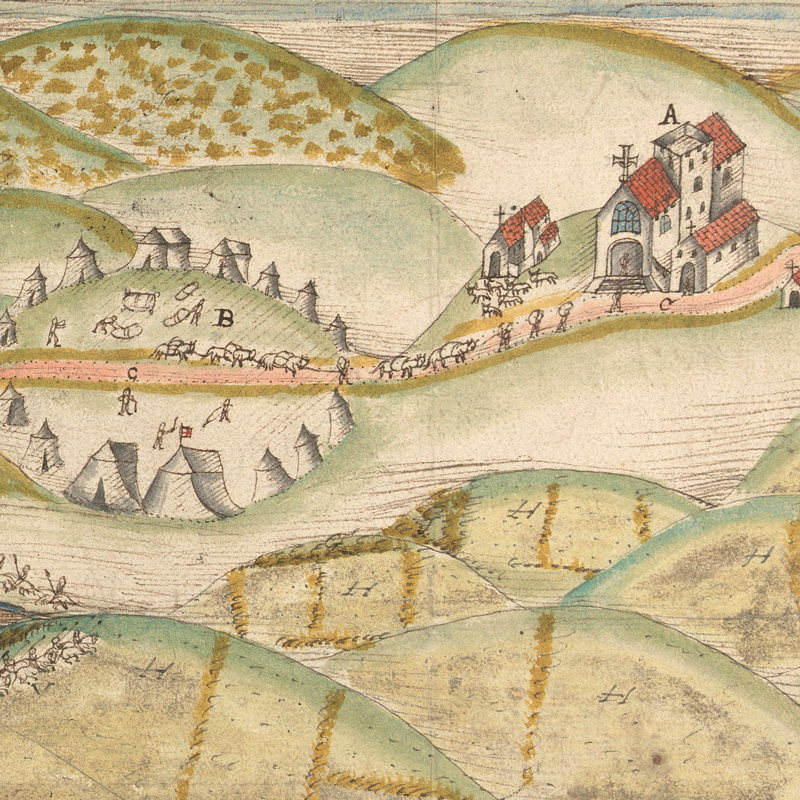 A
B
C
C
H
H
H
H
H